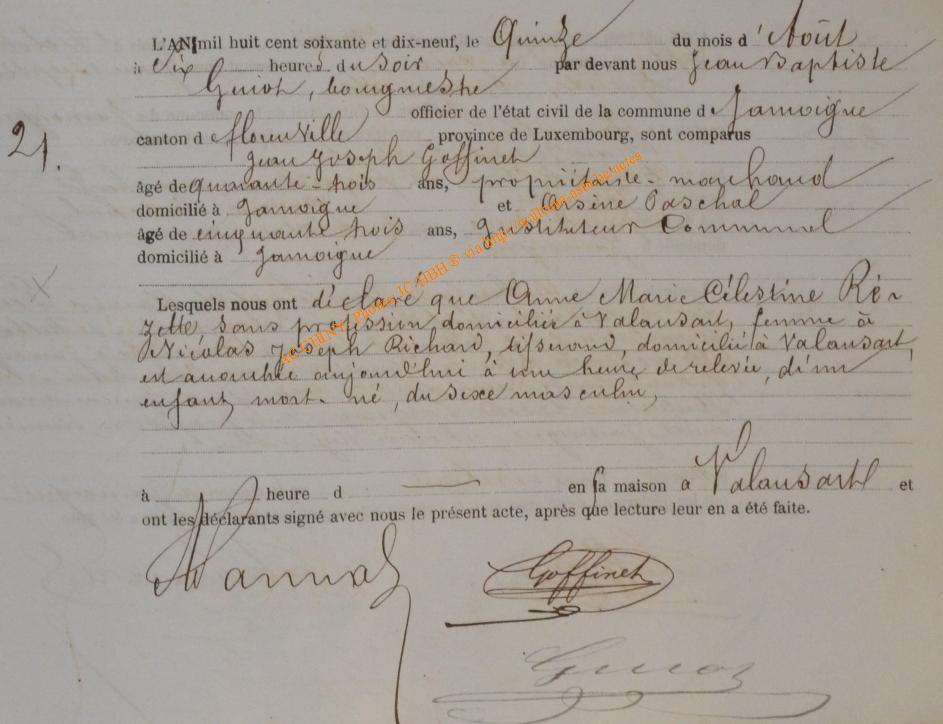 L'AN mil huit cent soixante et dix-neuf, le Quinze du mois d'Août
à Six heures du Soir par devant nous Jean Baptiste
Guiot, bourgmestre
officier de l'état civil de la commune de Jamoigne
21. canton de florenville province de Luxembourg, sont comparus
Jean Joseph Goffinet
âgé de quarante-trois ans, propriétaire-marchand
domicilié à Jamoigne et Arsène Paschal
âgé de cinquante trois ans, Instituteur Communal
domicilié à Jamoigne
Lesquels nous ont déclaré que Anne Marie Célestine Ré-
zette sans profession, domiciliée à Valansart, femme à
Nicolas Joseph Richard, tisserand, domicilié à Valansart,
est accouchée aujourd'hui à une heure de relevée, d'un
enfant mort-né, du sexe masculin,
à heure d en sa maison à Valansart et
ont les déclarants signé avec nous le présent acte, après que lecture leur en a été faite.
Goffinet
Guiot